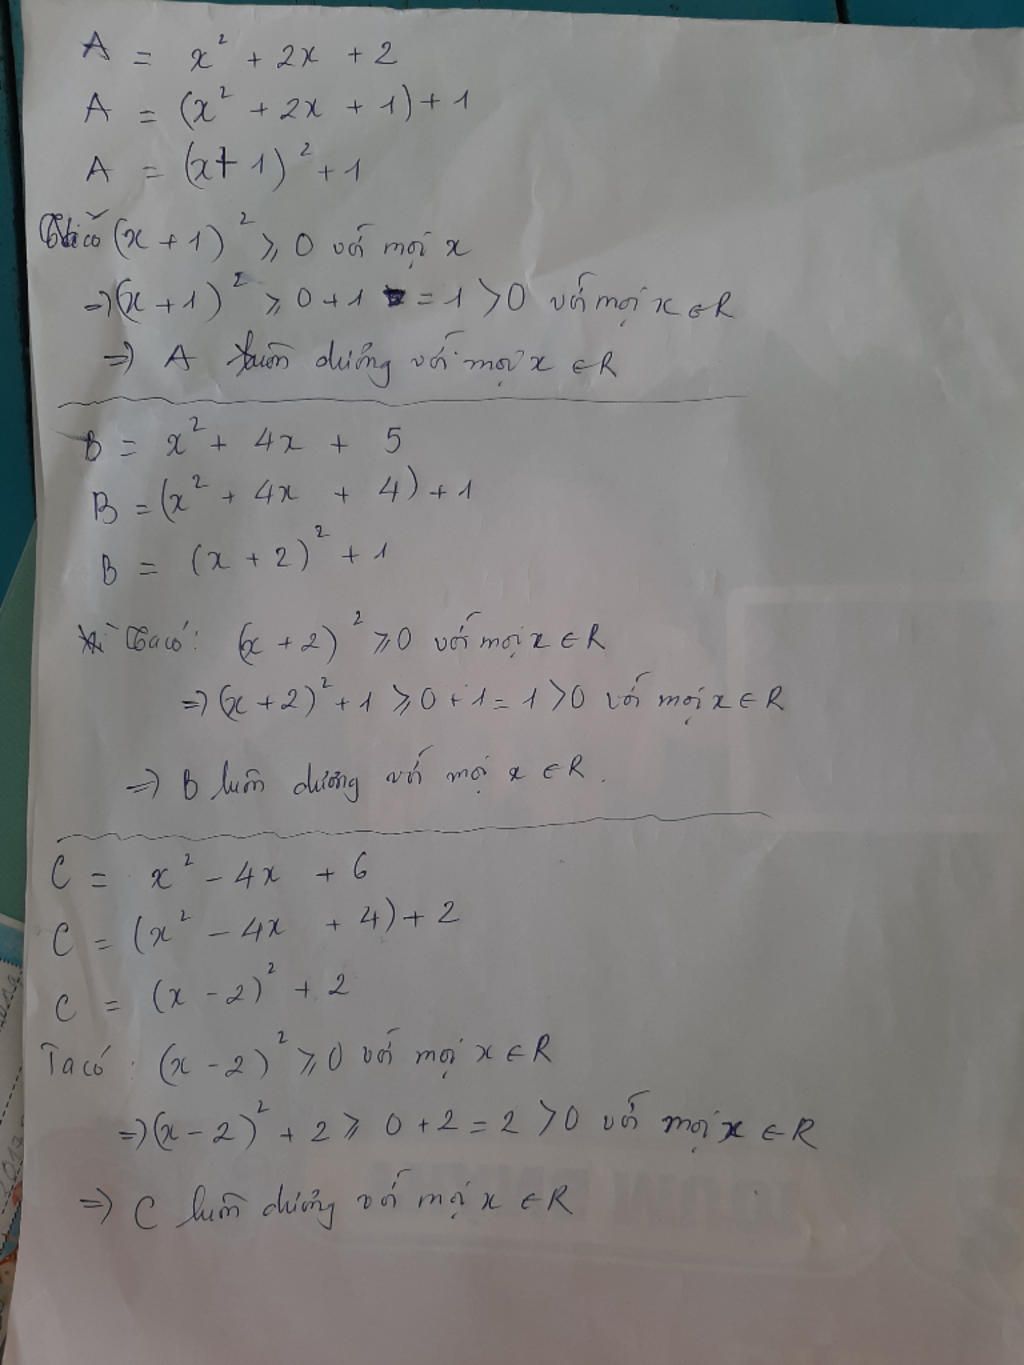 A = x² + 2x + 2
A = (x² + 2x + 1) + 1
A = (x + 1)² + 1
Ta có (x + 1)² ⩾ 0 với mọi x
=> (x + 1)² ⩾ 0 + 1 = 1 > 0 với mọi x ∈ R
=> A luôn dương với mọi x ∈ R
B = x² + 4x + 5
B = (x² + 4x + 4) + 1
B = (x + 2)² + 1
Ta có: (x + 2)² ⩾ 0 với mọi x ∈ R
=> (x + 2)² + 1 ⩾ 0 + 1 = 1 > 0 với mọi x ∈ R
=> B luôn dương với mọi x ∈ R.
C = x² - 4x + 6
C = (x² - 4x + 4) + 2
C = (x - 2)² + 2
Ta có: (x - 2)² ⩾ 0 với mọi x ∈ R
=> (x - 2)² + 2 ⩾ 0 + 2 = 2 > 0 với mọi x ∈ R
=> C luôn dương với mọi x ∈ R